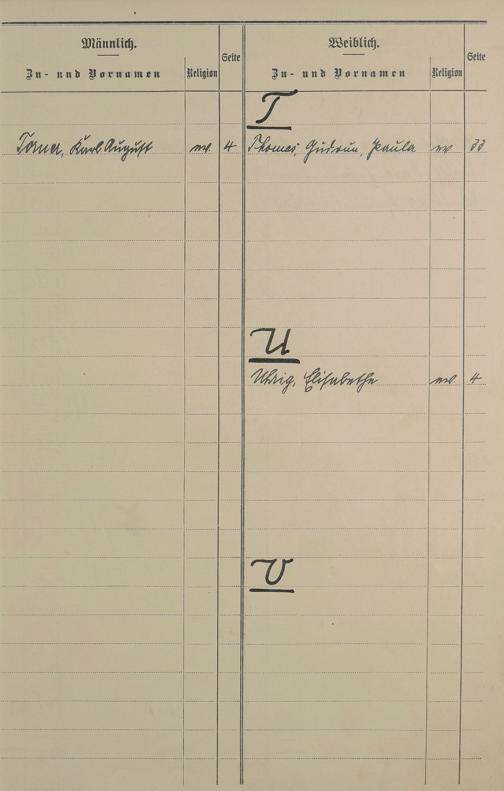 Männlich.
Weiblich.
Zu- und Vornamen Religion Seite Zu- und Vornamen Religion Seite
T
Karl August ev. 4 Thomas, Gudrun, Paula ev. 33
U
Uhrig, Elisabethe ev. 4
V